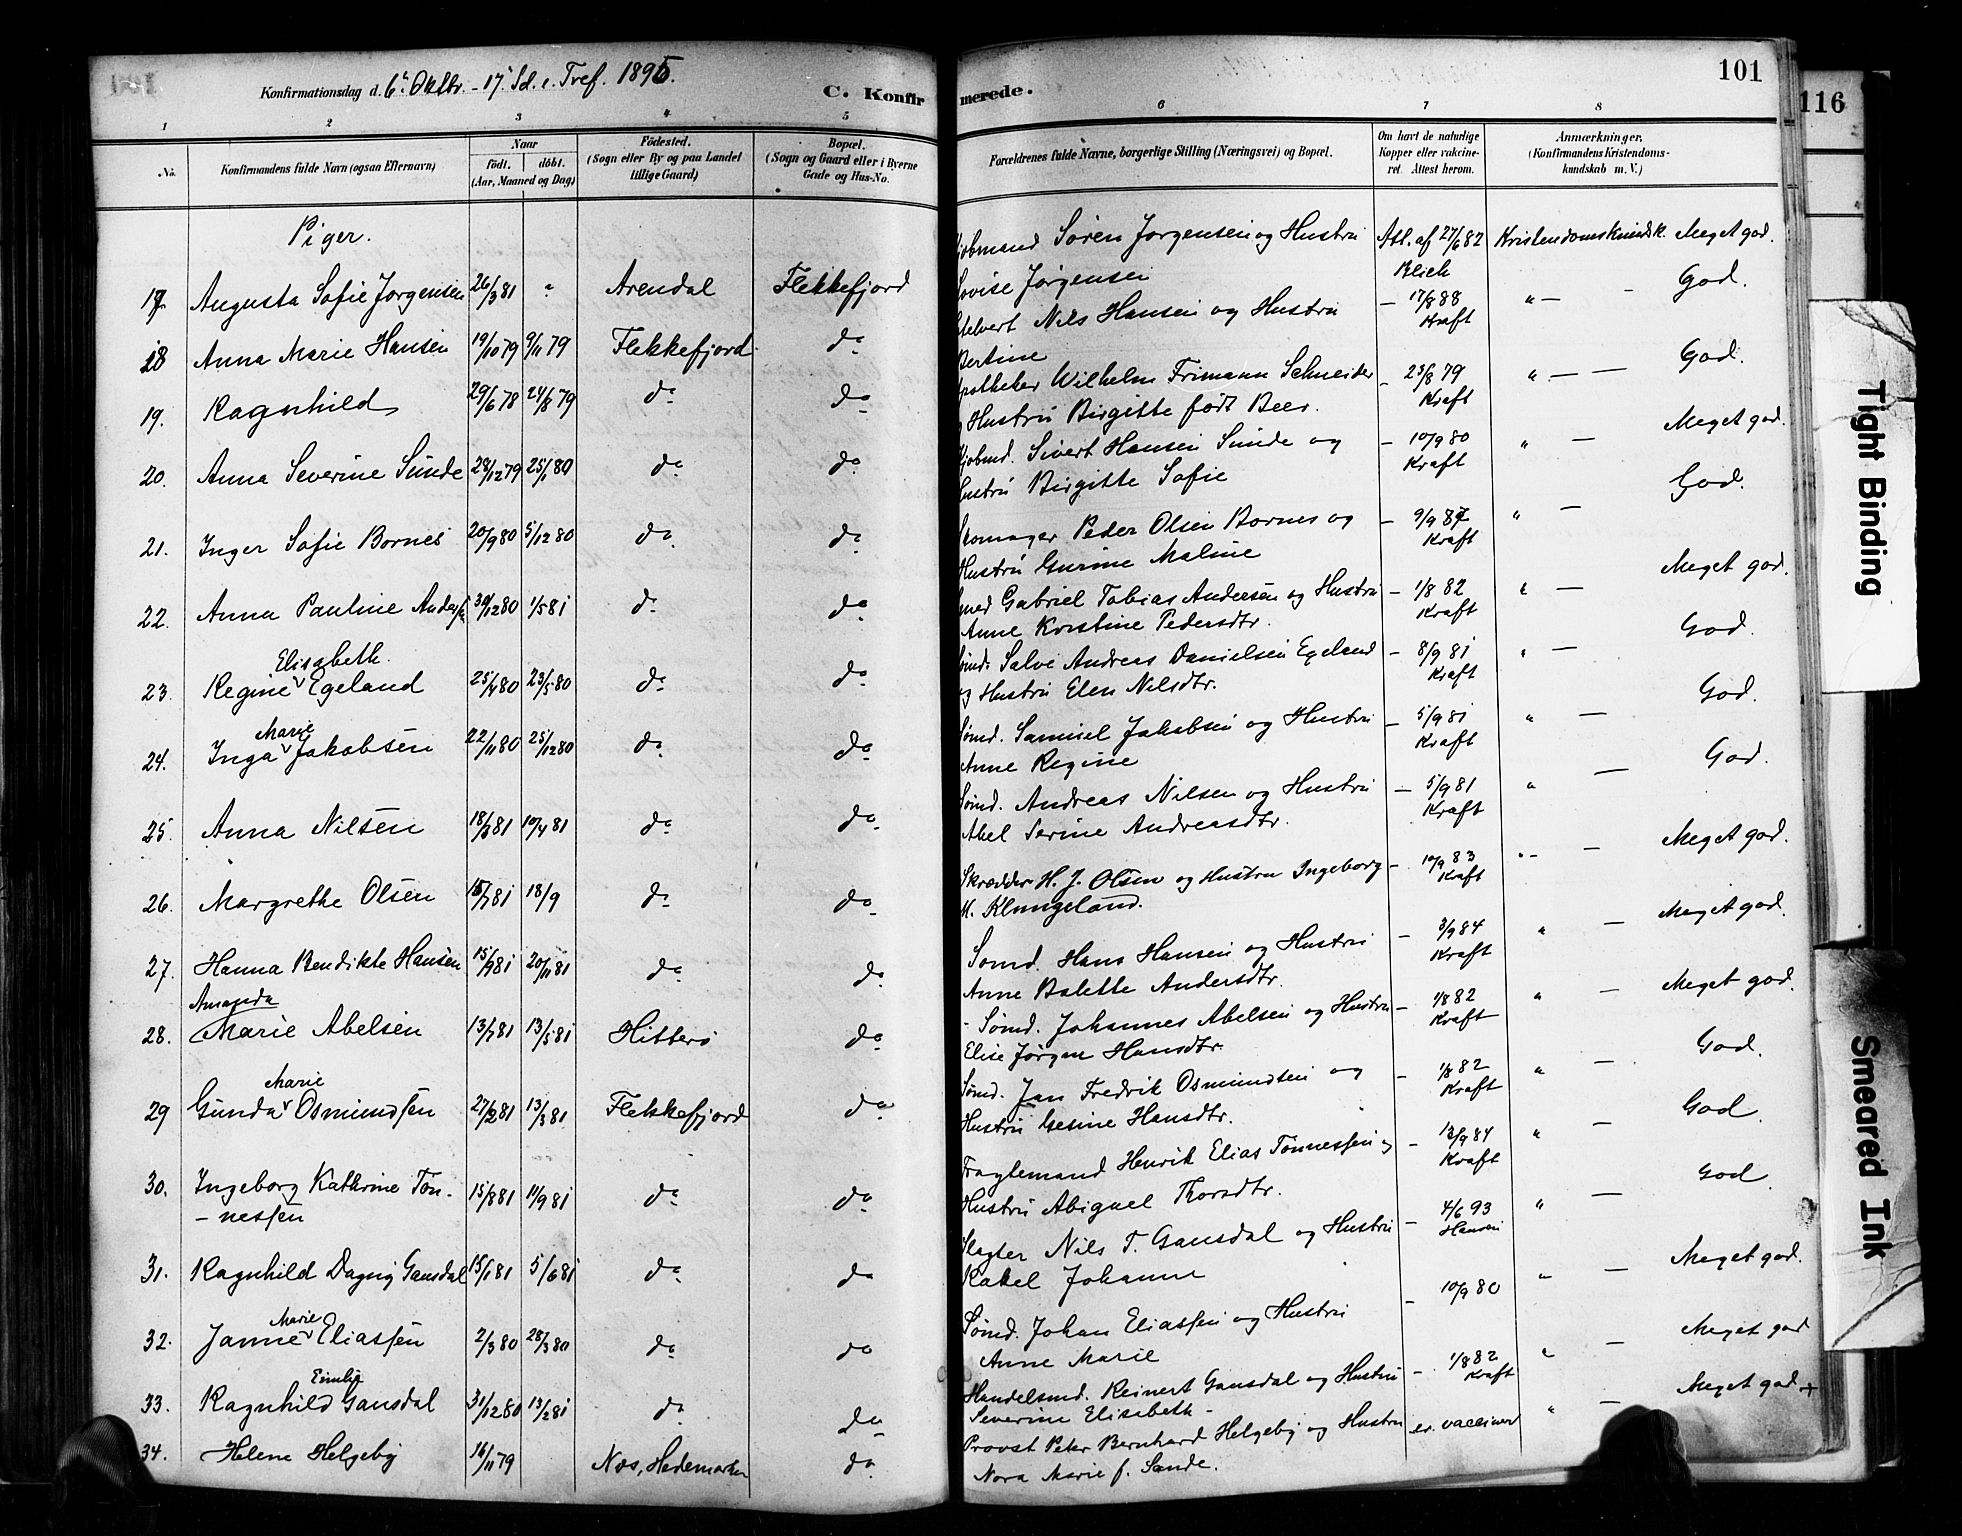 Konfirmationsdag d. 6te Oktbr. - 17. Sd. e. Tref. 1895.
C. Konfirmerede.
101
116
1 2 3 4 5 6 7 8
No.
Konfirmandens fulde Navn (ogsaa Efternavn)
Naar
födt. döbt.
(Aar, Maaned og Dag)
Födested.
(Sogn eller By og paa Landet
tillige Gaard)
Bopæl.
(Sogn og Gaard eller i Byerne
Gade og Hus-No.
Forældrenes fulde Navne, borgerlige Stilling (Næringsvei) og Bopæl.
Om havt de naturlige
Kopper eller vakcine-
ret. Attest herom.
Anmærkninger.
(Konfirmandens Kristendoms-
kundskab m. V.)
Piger.
17. Augusta Sofie Jørgensen 26/3 81 " Arendal Flekkefjord
Søren Jørgensen og Hustru
Lovise Jørgensen
Att. af 27/6 82
Blich
Kristendomskundsk. Meget god.
18 Anna Marie Hansen 19/10 79 9/11 79 Flekkefjord do
Nils Hansen og Hustru
Bertine
- 17/8 88
Kraft
" — God.
19. Ragnhild 29/6 78 24/8 79 do do
Apotheker Wilhelm Frimann Schneider
og Hustru Birgitte født Beer.
- 23/8 79
Kraft
" — — God.
20. Anna Severine Sunde 28/12 79 25/1 80 do do
Kjøbmd. Sivert Hansen Sunde og
Hustru Birgitte Sofie
- 10/9 80
Kraft
" — Meget god.
21. Inger Sofie Bornes 20/9 80 5/12 80 do do
Skomager Peder Olsen Bornes og
Hustru Gurine Maline
- 9/9 87
Kraft
" — God.
22. Anna Pauline Andersen 30/12 80 1/5 81 do do
Smed Gabriel Tobias Andersen og Hustru
Anne Kristine Pedersdtr.
- 1/8 82
Kraft
" — Meget god.
Elisabeth
23. Regine v Egeland 25/4 80 23/5 80 do do
Sømd. Salve Andreas Danielsen Egeland
og Hustru Elen Nilsdtr.
- 8/9 81
Kraft
" — God.
Marie
24. Inga v Jakobsen 22/11 80 25/12 80 do do
Sømd. Samuel Jakobsen og Hustru
Anne Regine
- 5/9 81
Kraft
" — God.
25. Anna Nilsen 18/3 81 10/4 81 do do
Sømd. Andreas Nilsen og Hustru
Abel Serine Andreasdtr.
- 5/9 81
Kraft
" — God.
26. Margrethe Olsen 15/7 81 18/9 do do
Skrædder H. J. Olsen og Hustru Ingeborg
M. Klungeland.
- 10/9 83
Kraft
" — Meget god.
27. Hanna Bendikte Hansen 15/9 81 20/11 81 do do
Sømd. Hans Hansen og Hustru
Anne Balette Andersdtr.
- 3/9 84
Kraft
" — Meget god.
Amanda
28. Marie Abelsen 13/ 81 13/5 81 Hitterø do
- Sømd. Johannes Abelsen og Hustru
Elise Jørgen Hansdtr.
- 1/8 82
Kraft
" — Meget god.
Marie
29 Gunda v Osmundsen 27/2 81 13/3 81 Flekkefjord do
Sømd. Jan Fredrik Osmundsen og
Hustru Gesine Hansdtr.
- 1/8 82
Kraft
" — God.
30. Ingeborg Kathrine Tøn-
- nessen 15/8 81 11/9 81 do do
Fragtemand Henrik Elias Tønnessen og
Hustru Abiguel Thorsdtr.
- 13/9 84
Kraft
" — God.
31. Ragnhild Dagny Gansdal 15/1 81 5/6 81 do do
Slagter Nils T. Gansdal og Hustru
Rakel Johanne
- 4/6 93
Hansen
" — God
Marie
32. Janne v Eliassen 2/3 80 28/3 80 do do
Sømd. Johan Eliassen og Hustru
Anne Marie
- 10/9 80
" — Meget god.
Emilie
33. Ragnhild Gansdal 31/12 80 13/2 81 do do
Handelsmd. Reinert Gansdal og Hustru
Severine Elisabeth -
- 1/8 82
Kraft
" — Meget god
34. Helene Helgeby 16/11 79 Nes, Hedemarken do
Provst Peter Bernhard Helgeby og Hustru
Nora Marie f. Sande.
er vaccineret
" — Meget god +
Tight Binding
Smeared Ink